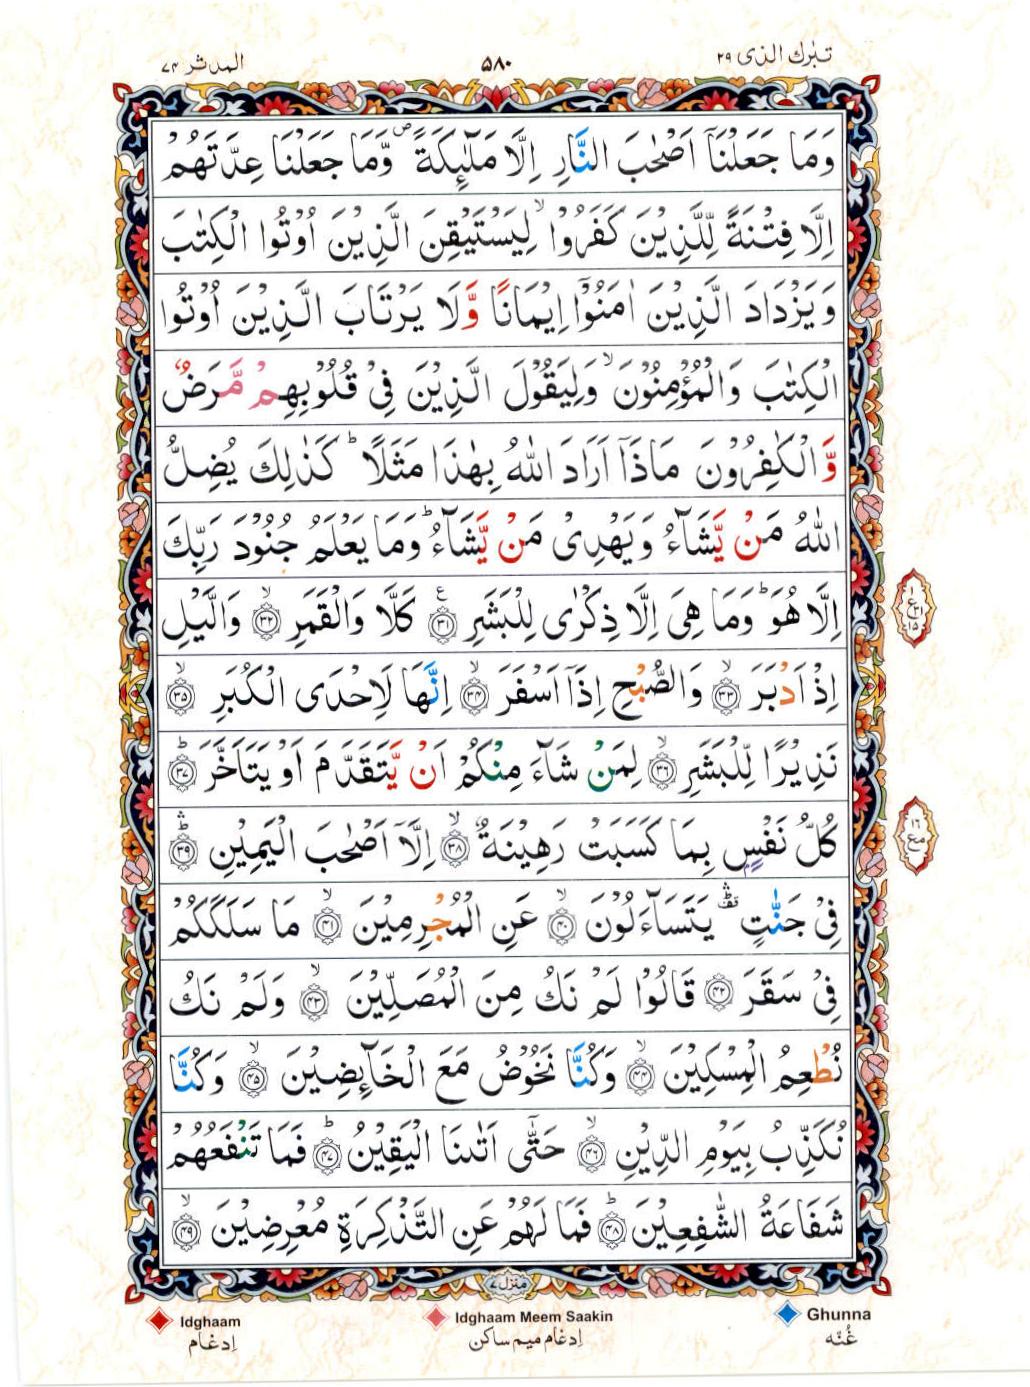 تبٰرك الذی ۲۹
۵۸۰
المدثر ۷۴
وَمَا جَعَلْنَاۤ اَصْحٰبَ النَّارِ اِلَّا مَلٰٓئِكَةً ۪ وَّمَا جَعَلْنَا عِدَّتَهُمْ
اِلَّا فِتْنَةً لِّلَّذِيْنَ كَفَرُوْا ۙ لِيَسْتَيْقِنَ الَّذِيْنَ اُوْتُوا الْكِتٰبَ
وَيَزْدَادَ الَّذِيْنَ اٰمَنُوْۤا اِيْمَانًا وَّلَا يَرْتَابَ الَّذِيْنَ اُوْتُوا
الْكِتٰبَ وَالْمُؤْمِنُوْنَ ۙ وَلِيَقُوْلَ الَّذِيْنَ فِيْ قُلُوْبِهِمْ مَّرَضٌ
وَّالْكٰفِرُوْنَ مَاذَاۤ اَرَادَ اللّٰهُ بِهٰذَا مَثَلًا ؕ كَذٰلِكَ يُضِلُّ
اللّٰهُ مَنْ يَّشَآءُ وَيَهْدِيْ مَنْ يَّشَآءُ ؕ وَمَا يَعْلَمُ جُنُوْدَ رَبِّكَ
اِلَّا هُوَ ؕ وَمَا هِيَ اِلَّا ذِكْرٰى لِلْبَشَرِ ﴿۳۱﴾ ع كَلَّا وَالْقَمَرِ ﴿۳۲﴾ ۙ وَالَّيْلِ
اِذْ اَدْبَرَ ﴿۳۳﴾ ۙ وَالصُّبْحِ اِذَاۤ اَسْفَرَ ﴿۳۴﴾ ۙ اِنَّهَا لَاِحْدَى الْكُبَرِ ﴿۳۵﴾ ۙ
نَذِيْرًا لِّلْبَشَرِ ﴿۳۶﴾ ۙ لِمَنْ شَآءَ مِنْكُمْ اَنْ يَّتَقَدَّمَ اَوْ يَتَاَخَّرَ ﴿۳۷﴾ ؕ
كُلُّ نَفْسٍۭ بِمَا كَسَبَتْ رَهِيْنَةٌ ﴿۳۸﴾ ۙ اِلَّاۤ اَصْحٰبَ الْيَمِيْنِ ﴿۳۹﴾ ؕۛ
فِيْ جَنّٰتٍ ۛ قف يَتَسَآءَلُوْنَ ﴿۴۰﴾ ۙ عَنِ الْمُجْرِمِيْنَ ﴿۴۱﴾ ۙ مَا سَلَكَكُمْ
فِيْ سَقَرَ ﴿۴۲﴾ قَالُوْا لَمْ نَكُ مِنَ الْمُصَلِّيْنَ ﴿۴۳﴾ ۙ وَلَمْ نَكُ
نُطْعِمُ الْمِسْكِيْنَ ﴿۴۴﴾ ۙ وَكُنَّا نَخُوْضُ مَعَ الْخَآئِضِيْنَ ﴿۴۵﴾ ۙ وَكُنَّا
نُكَذِّبُ بِيَوْمِ الدِّيْنِ ﴿۴۶﴾ ۙ حَتّٰٓى اَتٰىنَا الْيَقِيْنُ ﴿۴۷﴾ ؕ فَمَا تَنْفَعُهُمْ
شَفَاعَةُ الشّٰفِعِيْنَ ﴿۴۸﴾ ؕ فَمَا لَهُمْ عَنِ التَّذْكِرَةِ مُعْرِضِيْنَ ﴿۴۹﴾ ۙ
منزل ۷
Ghunna
غُنّه
Idghaam Meem Saakin
إدغام ميم ساكن
Idghaam
إدغام